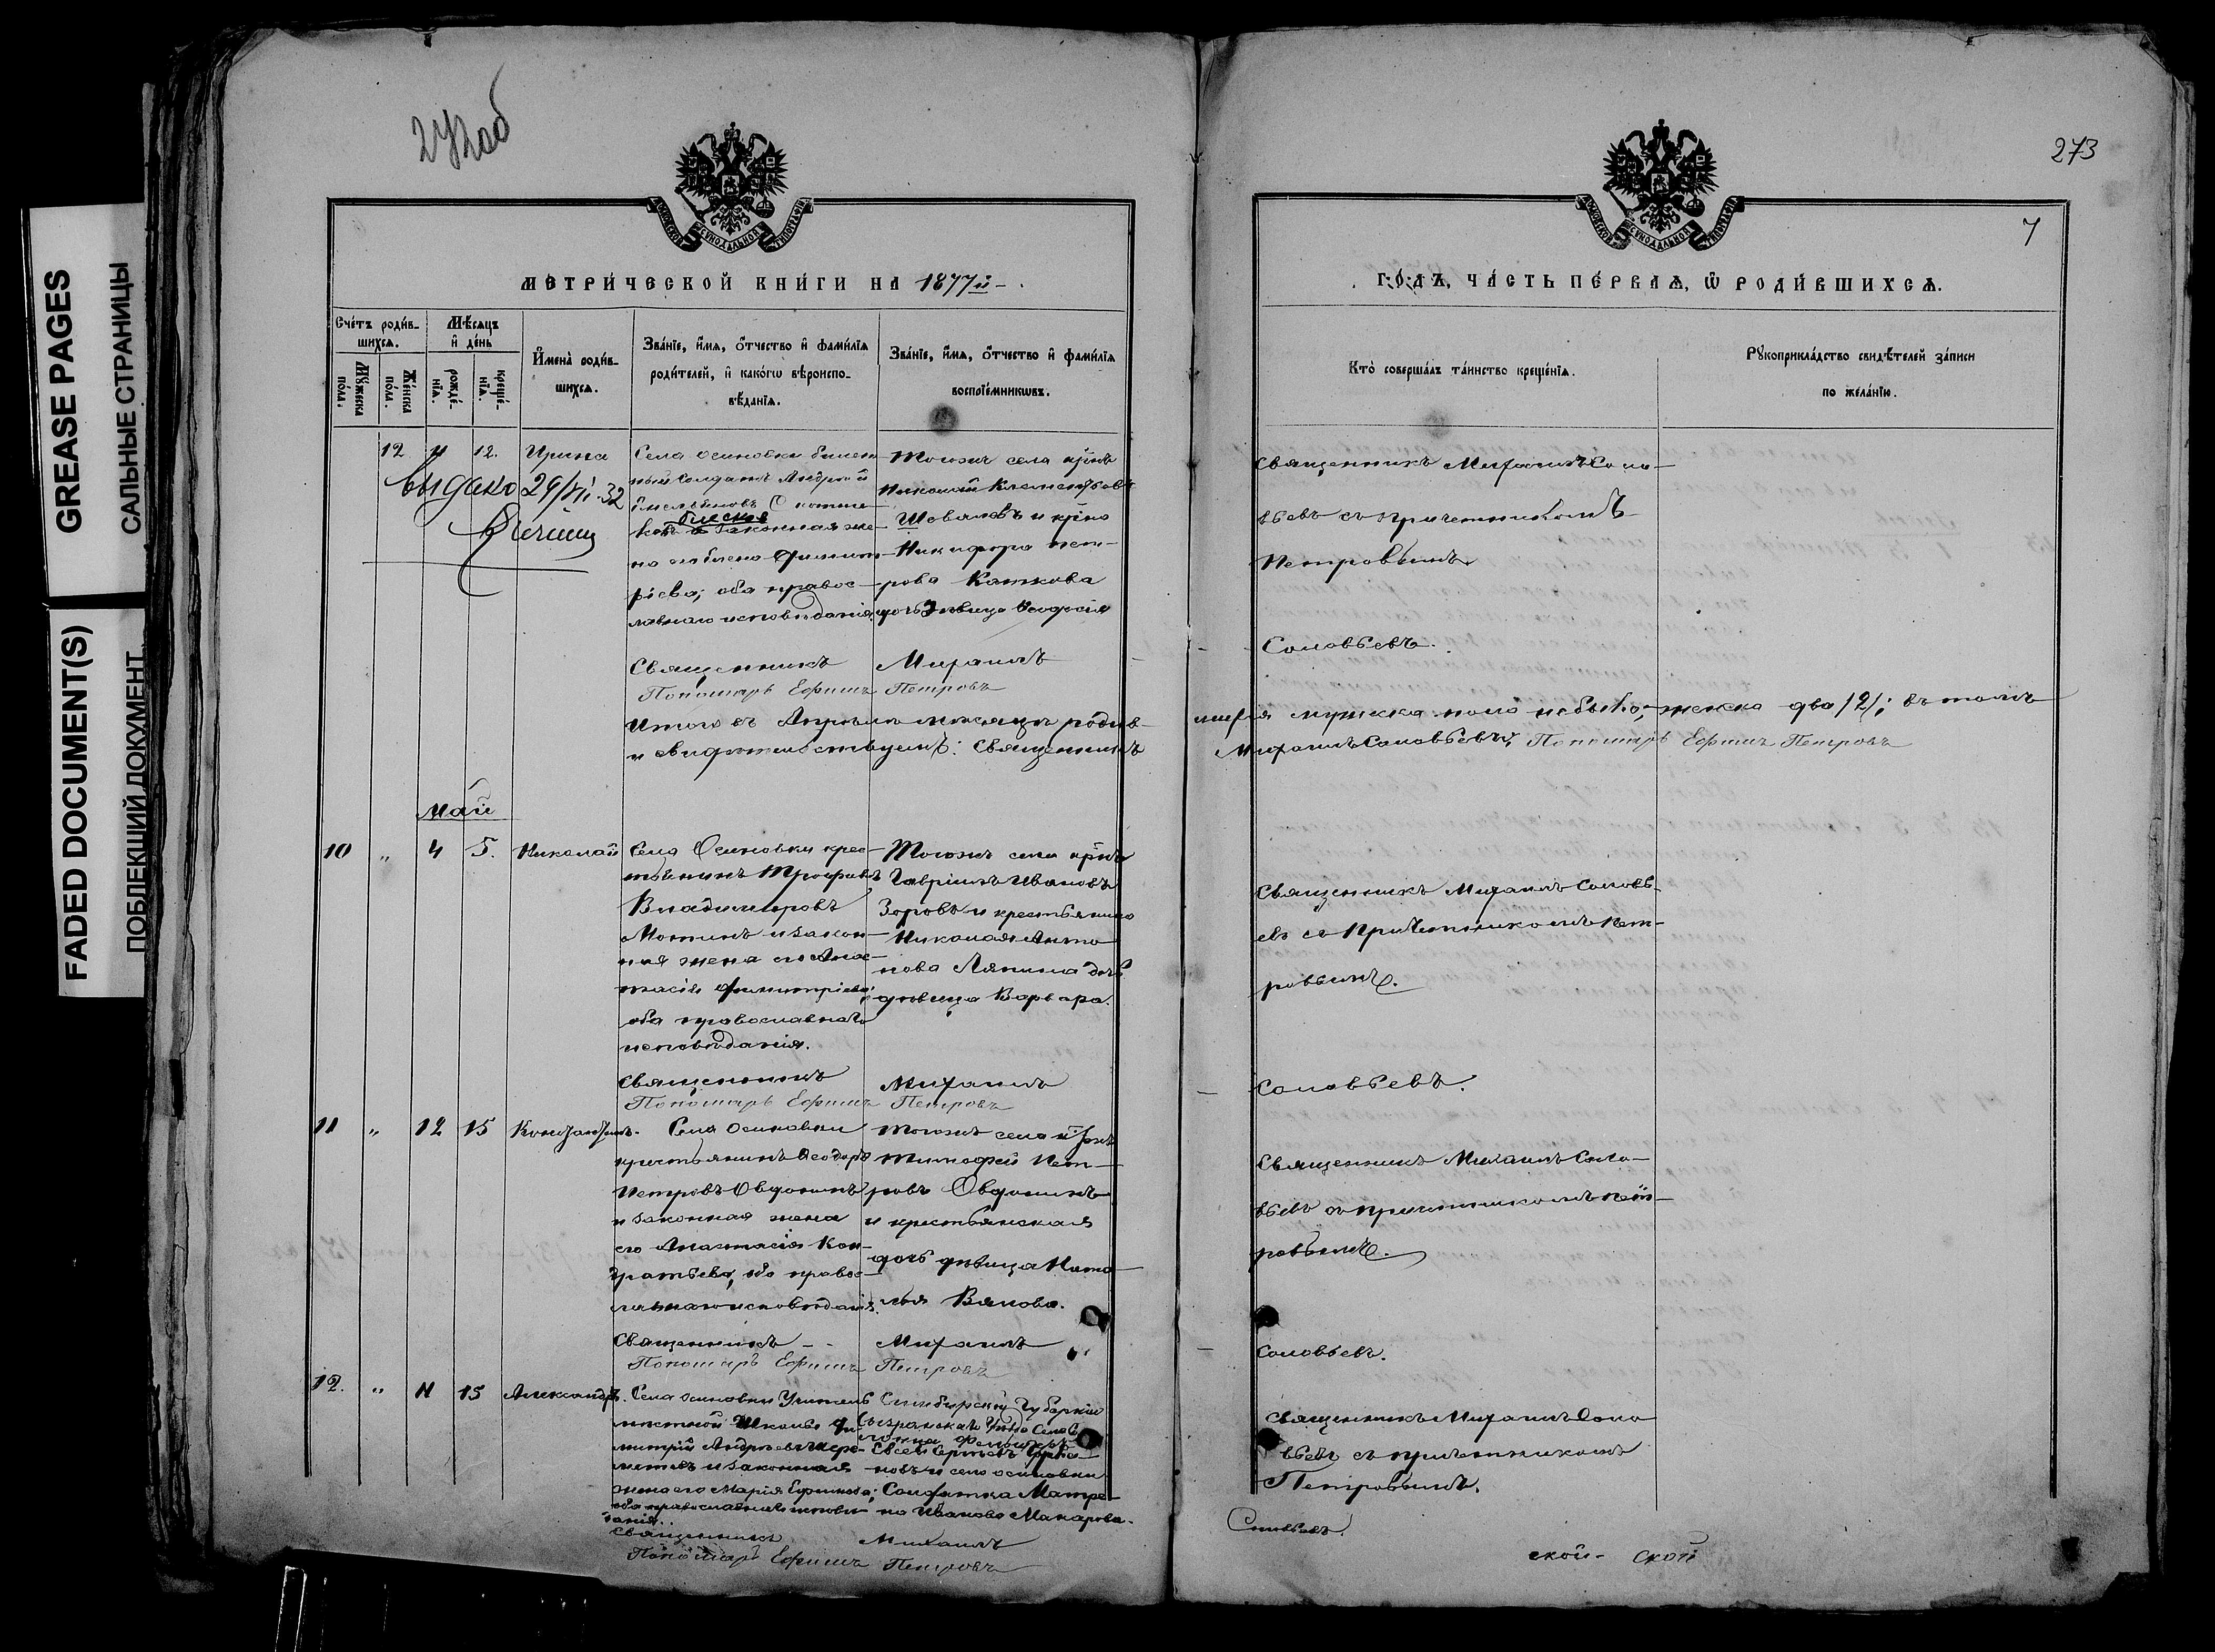 GREASE PAGES
САЛЬНЫЕ СТРАНИЦЫ
FADED DOCUMENT(S)
ПОБЛЕКШИЙ ДОКУМЕНТ
272об
МЕТРИ́ЧЕСКОЙ КНИ́ГИ НА 1877й
Сче́тъ роди́в-
шихсѧ.
Мꙋ́жеска
по́ла.
Же́нска
по́ла.
Мѣ́сѧцъ
и҆ де́нь
рожде́-
нїѧ.
креще́-
нїѧ.
И҆мена̀ роди́в-
шихсѧ.
Зва́нїе, и҆́мѧ, ѻ҆́тчество и҆ фами́лїѧ
роди́телей, и҆ како́гѡ вѣроиспо-
вѣ́данїѧ.
Зва́нїе, и҆́мѧ, ѻ҆́тчество и҆ фами́лїѧ
воспрїе́мникѡвъ.
12 11 12. Ирина
Выдано 29/VI-32
Села Осиновки билет
ный Солдатъ Андрей
Емельяновъ
законная же-
на его Димит-
ріева; оба правос-
лавнаго исповѣданія
Тогожъ села крнъ
Николай Климентовъ
Шоваловъ и крно
Никифора Пет-
рова Каткова
дочь дѣвица Ѳеодосія
Священникъ Михаилъ
Пономарь Ефимъ Петровъ
Итого въ Апрѣлѣ мѣсяцѣ родив-
и свидѣтельствуемъ: Священникъ
Май
10 „ 4 5. Николай
Села Осиновки крес-
тьянинъ Трофимъ
Владимировъ
Мотинъ и закон-
ная жена его Анас-
тасія Димитріева;
оба православнаго
исповѣданія.
Тогожъ села крнъ
Гавріилъ Ивановъ
Зоровъ и крестьянина
Николая Анто
нова Ляпина дочь
дѣвица Варвара.
Священникъ Михаилъ
Пономарь Ефимъ Петровъ
11 „ 12 15 Константинъ.
Села Осиновки
крестьянинъ Ѳеодоръ
Петровъ Овдонинъ
и законная жена
его Анастасія Кон-
дратьева, оба правос-
лавнаго исповѣданія.
Тогожъ села
Тимофей Пет-
ровъ Овдонинъ
и крестьянская
дочь дѣвица Ната-
лья Вялова.
Священникъ Михаилъ
Пономарь Ефимъ Петровъ
12. „ 11 15 Александръ.
Села Осиновки Учитель
мѣстной Школы Ди-
митрій Андреевъ Шере-
метевъ и законная
жена его Марія Ефимова;
оба православнаго исповѣ-
данія.
Симбирской Губерніи
Сызранскаго Уѣзда Села
Евсей Сергѣевъ
новъ и села Осиновки
Солдатка Матре-
на Иванова Макарова.
Священникъ Михаилъ
Пономарь Ефимъ Петровъ
273
7
ГО́ДЪ, ЧА́СТЬ ПЕ́РВАѦ, Ѽ РОДИ́ВШИХСѦ.
Кто̀ соверша́лъ та́инство креще́нїѧ.
Рꙋкоприкла́дство свидѣ́телей за́писи
по жела́нїю.
Священникъ Михаилъ Соло-
вьевъ съ причетникомъ
Петровымъ.
Соловьевъ.
шихся мужеска пола не было; женска два /2/; въ томъ
Михаилъ Соловьевъ, Пономарь Ефимъ Петровъ
Священникъ Михаилъ Соловь-
евъ съ причетникомъ Пет-
ровымъ.
Соловьевъ.
Священникъ Михаилъ Соло-
вьевъ съ причетникомъ Пет-
ровымъ.
Соловьевъ.
Священникъ Михаилъ Соло
вьевъ съ причетникомъ
Петровымъ.
Соловьевъ.
ской- ской